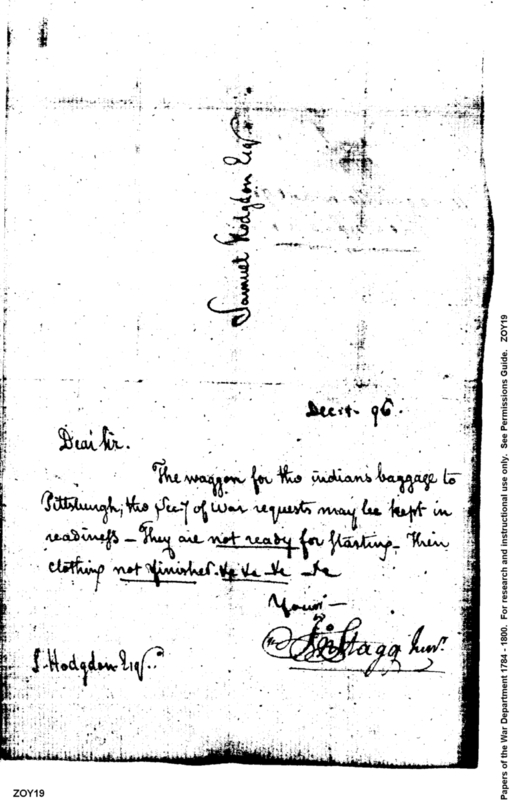 Samuel Hodgdon Esqr
Dec: 96.
Dear Sir.
The waggon for the indians baggage to
Pittsburgh, the Secy of War requests may be kept in
readiness – They are not ready for starting – Their
clothing not finished &c &c &c – &c
Yours –
Jno Stagg Junr.
S. Hodgdon Esqr
ZOY19
Papers of the War Department 1784 - 1800. For research and instructional use only. See Permissions Guide. ZOY19